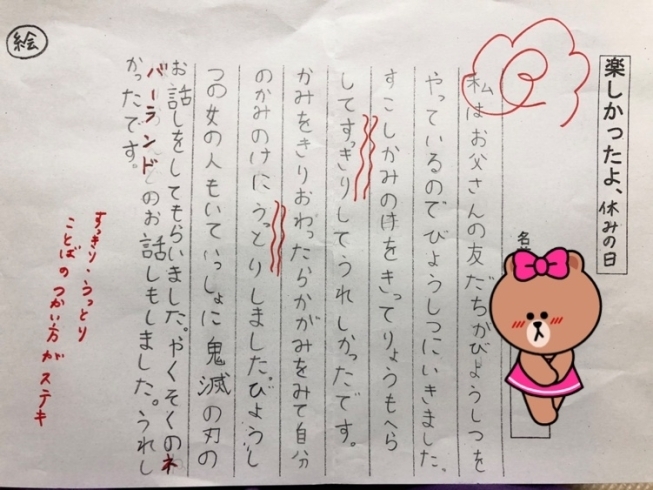 楽しかったよ、休みの日
名
私はお父さんの友だちがびょうしつを
やっているのでびょうしつにいきました、
すこしかみのけをきってりょうもへら
してすっきりしてうれしかったです。
かみをきりおわったらかがみをみて自分
のかみのけにうっとりしました。びょうし
つの女の人もいていっしょに鬼滅の刃の
お話しをしてもらいました。やくそくのネ
バーランドのお話しもしました。うれし
かったです。
すっきり、うっとり
ことばのつかい方がステキ
絵